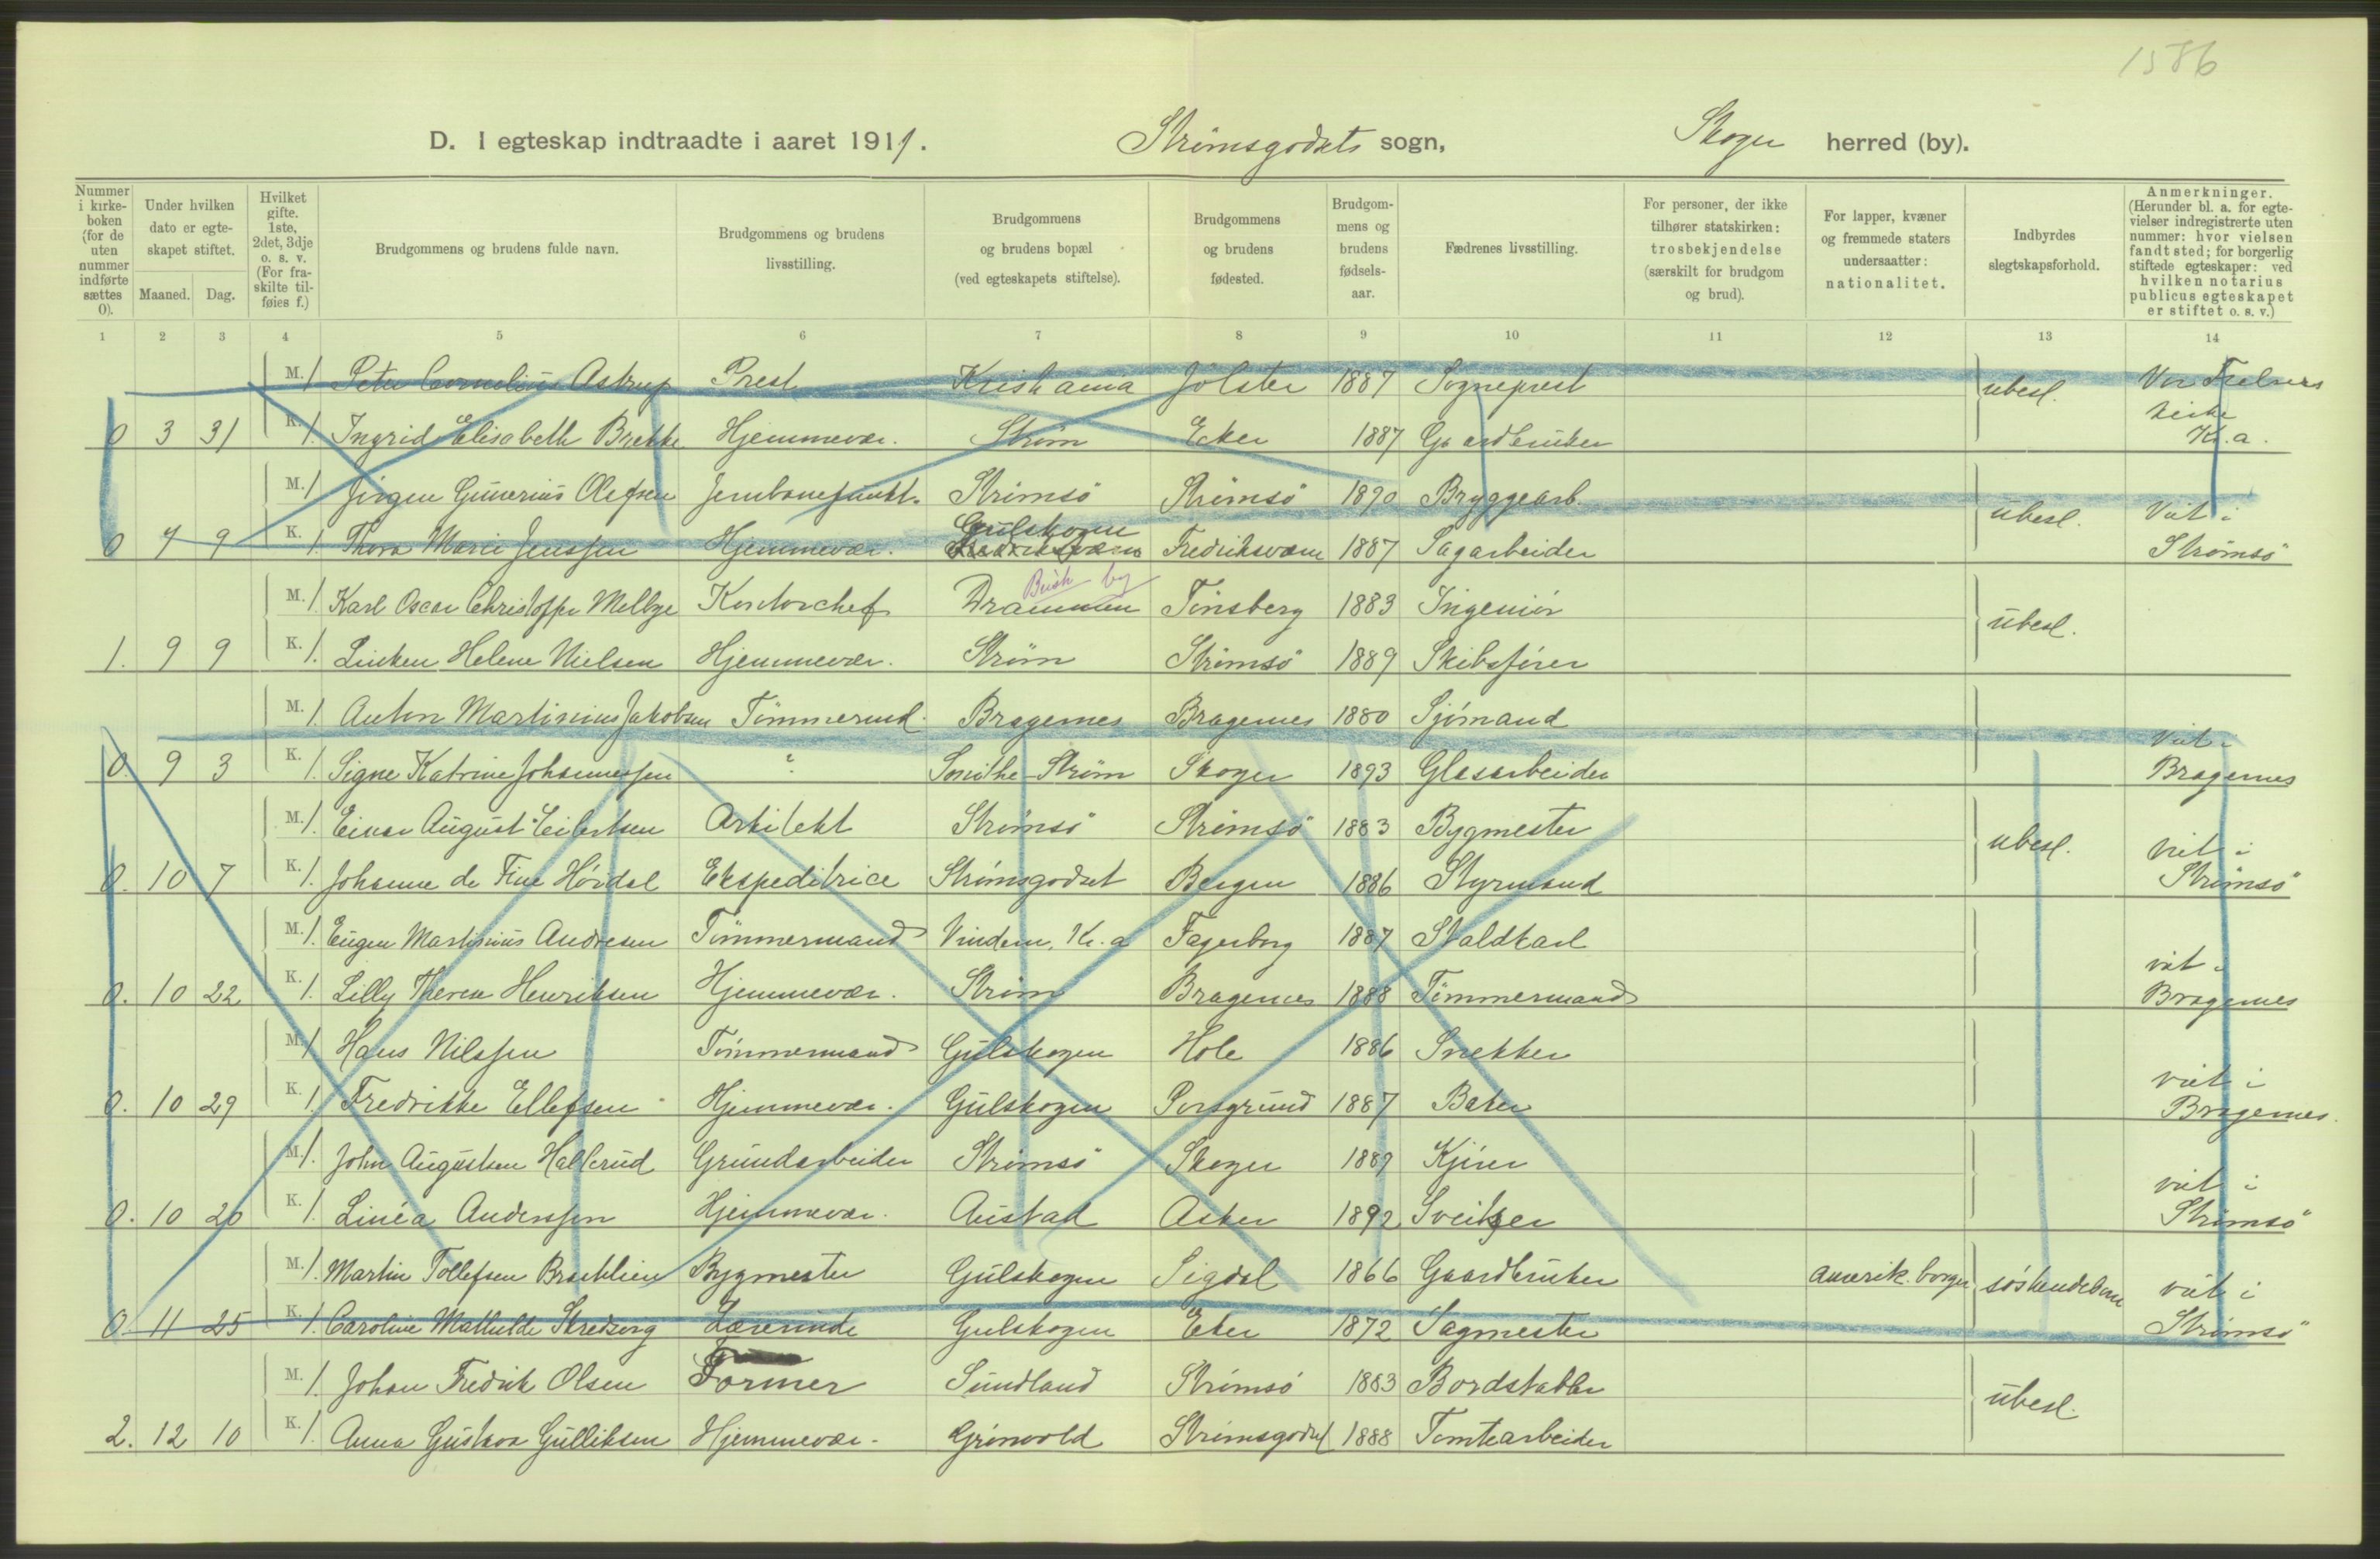 1586
D. I egteskap indtraadte i aaret 1911. Strømsgodsets sogn, Skoger herred (by).
Nummer i kirkeboken (for de uten nummer indførte sættes 0).
Under hvilken dato er egteskapet stiftet.
Maaned. Dag.
Hvilket gifte. 1ste, 2det, 3dje o. s. v. (For fraskilte tilføies f.)
Brudgommens og brudens fulde navn.
Brudgommens og brudens livsstilling.
Brudgommens og brudens bopæl (ved egteskapets stiftelse).
Brudgommens og brudens fødested.
Brudgommens og brudens fødselsaar.
Fædrenes livsstilling.
For personer, der ikke tilhører statskirken: trosbekjendelse (særskilt for brudgom og brud).
For lapper, kvæner og fremmede staters undersaatter: nationalitet.
Indbyrdes slegtskapsforhold.
Anmerkninger. (Herunder bl. a. for egtevielser indregistrerte uten nummer: hvor vielsen fandt sted; for borgerlig stiftede egteskaper: ved hvilken notarius publicus egteskapet er stiftet o. s. v.)
1 2 3 4 5 6 7 8 9 10 11 12 13 14
M. 1 Peter Cornelius Astrup Prest Kristiania Jølster 1887 Sogneprest ubesl. Vor Frelsers
kirke
0 3 31 K. 1. Ingrid Elisabeth Brekke Hjemmevær. Strøm Eker 1887 Gaardbruker Kr.a.
M. 1 Jørgen Gunerius Olefsen Jernbanefunkt. Strømsø Strømsø 1890 Bryggearb. ubesl. Viet i
Gulskogen
0 7 9 K. 1. Thora Marie Jenssen Hjemmevær. Fredriksværn Fredriksværn 1887 Sagarbeider Strømsø
Busk by
M. 1. Karl Oscar Christoffer Melbye Kontorchef Drammen Tønsberg 1883 Ingeniør ubesl.
1. 9 9 K. 1. Linken Helene Nielsen Hjemmevær. Strøm Strømsø 1889 Skibsfører
M. 1. Anton Martinius Jakobsen Tømmermd. Bragernes Bragernes 1880 Sjømand Viet i
0. 9 3 K. 1. Signe Katrine Johannessen ? Smithe-Strøm Skoger 1893 Glasarbeider Bragernes
M. 1. Einar August Eilertsen Arkitekt Strømsø Strømsø 1883 Bygmester ubesl. viet i
0. 10 7 K. 1. Johanne de Fine Hørdal Ekspeditrice Strømsgodset Bergen 1886 Styrmand Strømsø
M. 1. Eugen Martinius Andresen Tømmermand Vindern, Kr.a Fagerborg 1887 Staldkarl viet i
0. 10 22 K. 1. Lilly Therea Henriksen Hjemmevær. Strøm Bragernes 1888 Tømmermand Bragernes
M. 1 Hans Nilssen Tømmermand Gulskogen Hole 1886 Snekker viet i
0. 10 29 K. 1. Fredrikke Ellefsen Hjemmevær. Gulskogen Porsgrund 1887 Baker Bragernes.
M. 1. John Augustsen Hallerud Grundarbeider Strømsø Skoger 1889 Kjører viet i
0. 10 20 K. 1. Linéa Anderssen Hjemmevær. Austad Asker 1892 Sveitser Strømsø
M. 1. Martin Tollefsen Bratlien Bygmester Gulskogen Sigdal 1866 Gaardbruker amerik. borger søskendebarn viet i
0. 11 25 K. 1. Caroline Mathilde Skredsvig Lærerinde Gulskogen Eker 1872 Sagmester Strømsø
M. 1. Johan Fredrik Olsen Former Sundland Strømsø 1883 Bordstabler ubesl.
2. 12 10 K. 1. Anna Gustava Gulliksen Hjemmevær. Grønvold Strømsgodset 1888 Tomtearbeider